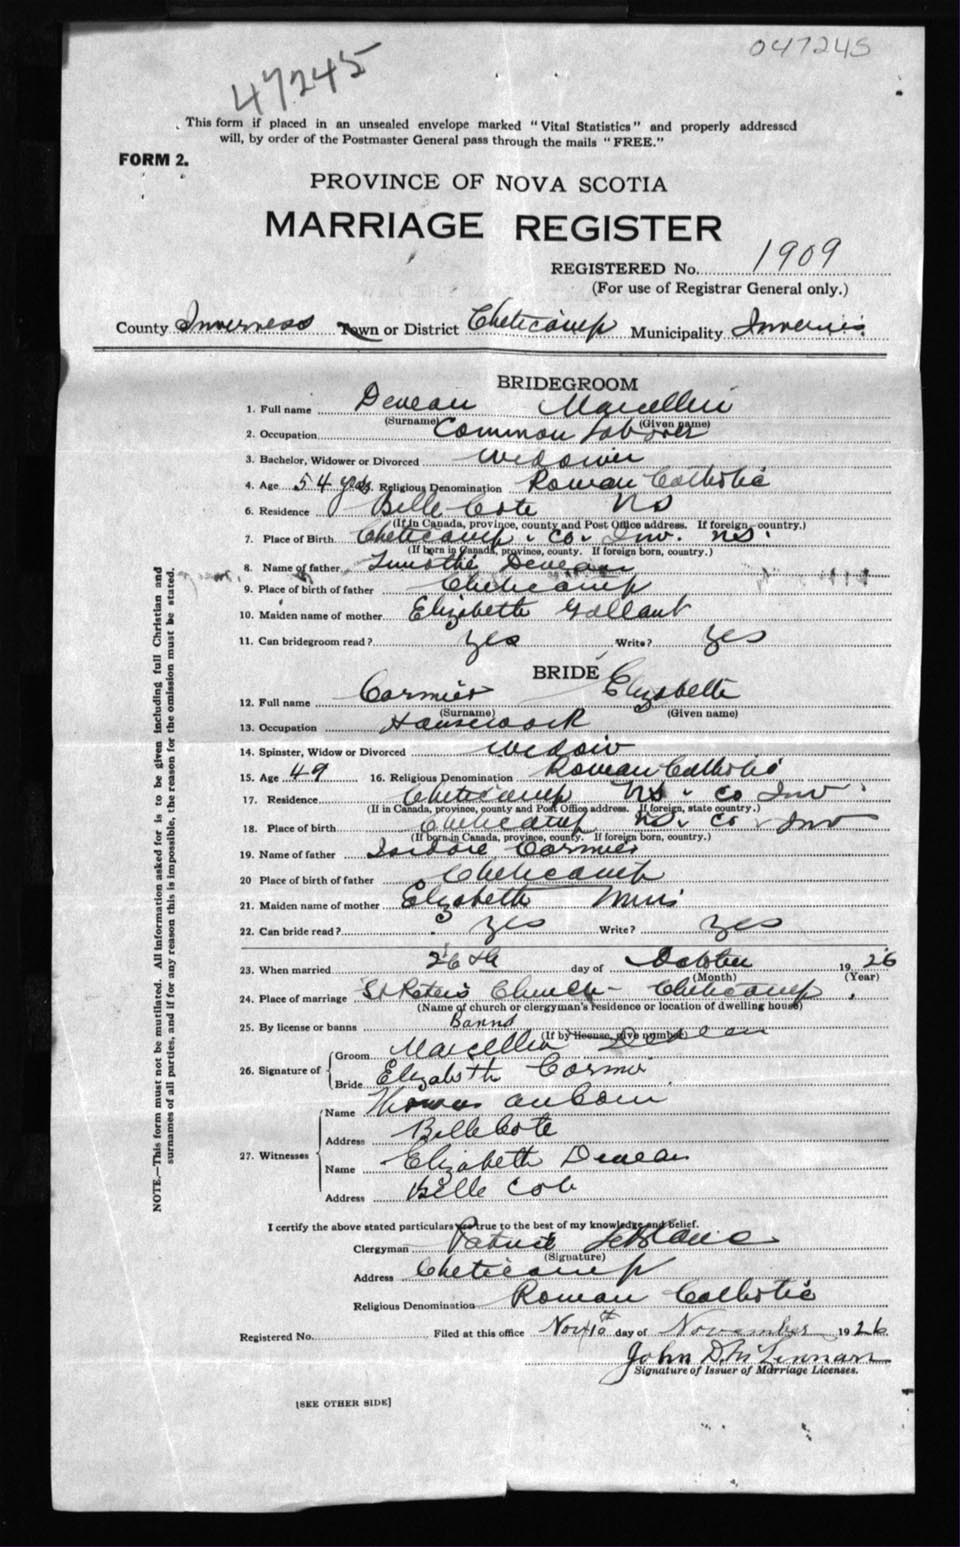 047245
47245
This form if placed in an unsealed envelope marked "Vital Statistics" and properly addressed
will, by order of the Postmaster General pass through the mails "FREE."
FORM 2.
PROVINCE OF NOVA SCOTIA
MARRIAGE REGISTER
REGISTERED No. 1909
(For use of Registrar General only.)
County Inverness Town or District Cheticamp Municipality Inverness
BRIDEGROOM
1. Full name Deveau Marcellin
(Surname) (Given name)
2. Occupation Common Laborer
3. Bachelor, Widower or Divorced widower
4. Age 54 yrs. Religious Denomination Roman Catholic
6. Residence Belle Cote NS
(If in Canada, province, county and Post Office address. If foreign, country.)
7. Place of Birth Cheticamp Co Inv. NS.
(If born in Canada, province, county. If foreign born, country.)
8. Name of father Timothé Deveau
9. Place of birth of father Cheticamp
10. Maiden name of mother Elizabeth Gallant
11. Can bridegroom read? yes Write? yes
BRIDE
12. Full name Cormier Elizabeth
(Surname) (Given name)
13. Occupation Housework
14. Spinster, Widow or Divorced widow
15. Age 49 16. Religious Denomination Roman Catholic
17. Residence Cheticamp NS Co Inv
(If in Canada, province, county and Post Office address. If foreign, state country.)
18. Place of birth Cheticamp NS. Co Inv
(If born in Canada, province, county. If foreign born, country.)
19. Name of father Isidore Cormier
20 Place of birth of father Cheticamp
21. Maiden name of mother Elizabeth
22. Can bride read? yes Write? yes
23. When married 26th day of October 1926
(Month) (Year)
24. Place of marriage St Peters Church - Cheticamp
(Name of church or clergyman's residence or location of dwelling house)
25. By license or banns Banns
(If by license, give number)
26. Signature of Groom Marcellin Deveau
Bride Elizabeth Cormier
27. Witnesses Name Thomas AuCoin
Address Belle Cote
Name Elizabeth Deveau
Address Belle Cote
I certify the above stated particulars are true to the best of my knowledge and belief.
Clergyman Patrice LeBlanc
(Signature)
Address Cheticamp
Religious Denomination Roman Catholic
Registered No. Filed at this office Nov 10th day of November 1926
John D. McLennan
Signature of Issuer of Marriage Licenses.
[SEE OTHER SIDE]
NOTE.—This form must not be mutilated. All information asked for is to be given including full Christian and
surnames of all parties, and if for any reason this is impossible, the reason for the omission must be stated.